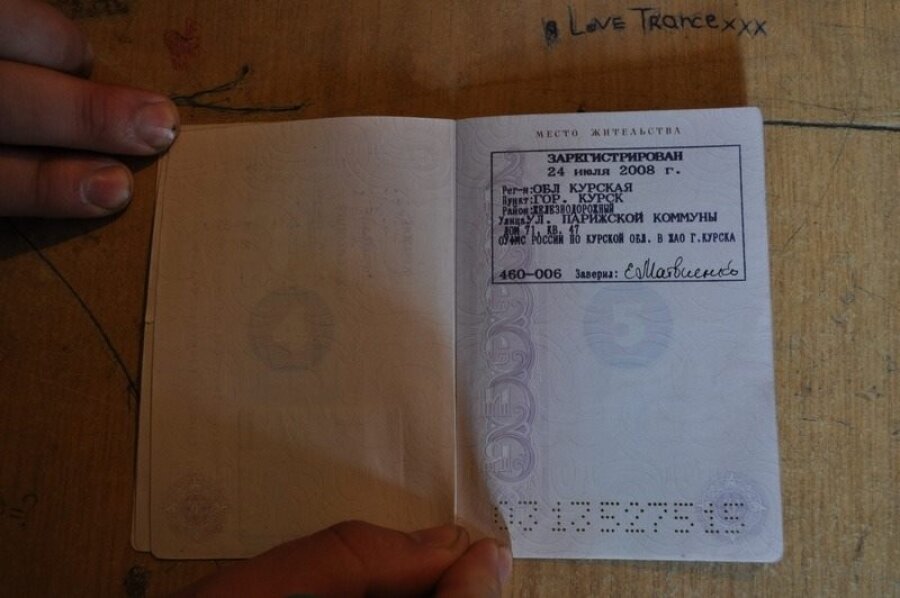 I Love Trance xxx
МЕСТО ЖИТЕЛЬСТВА
ЗАРЕГИСТРИРОВАН
24 июля 2008 г.
Рег-н: ОБЛ КУРСКАЯ
Пункт: ГОР. КУРСК
Район: ЖЕЛЕЗНОДОРОЖНЫЙ
Улица: УЛ. ПАРИЖСКОЙ КОММУНЫ
ДОМ 71, КВ. 47
ОУФМС РОССИИ ПО КУРСКОЙ ОБЛ. В ЖАО Г.КУРСКА
460-006 Заверил: Е Матвиенко
4
5